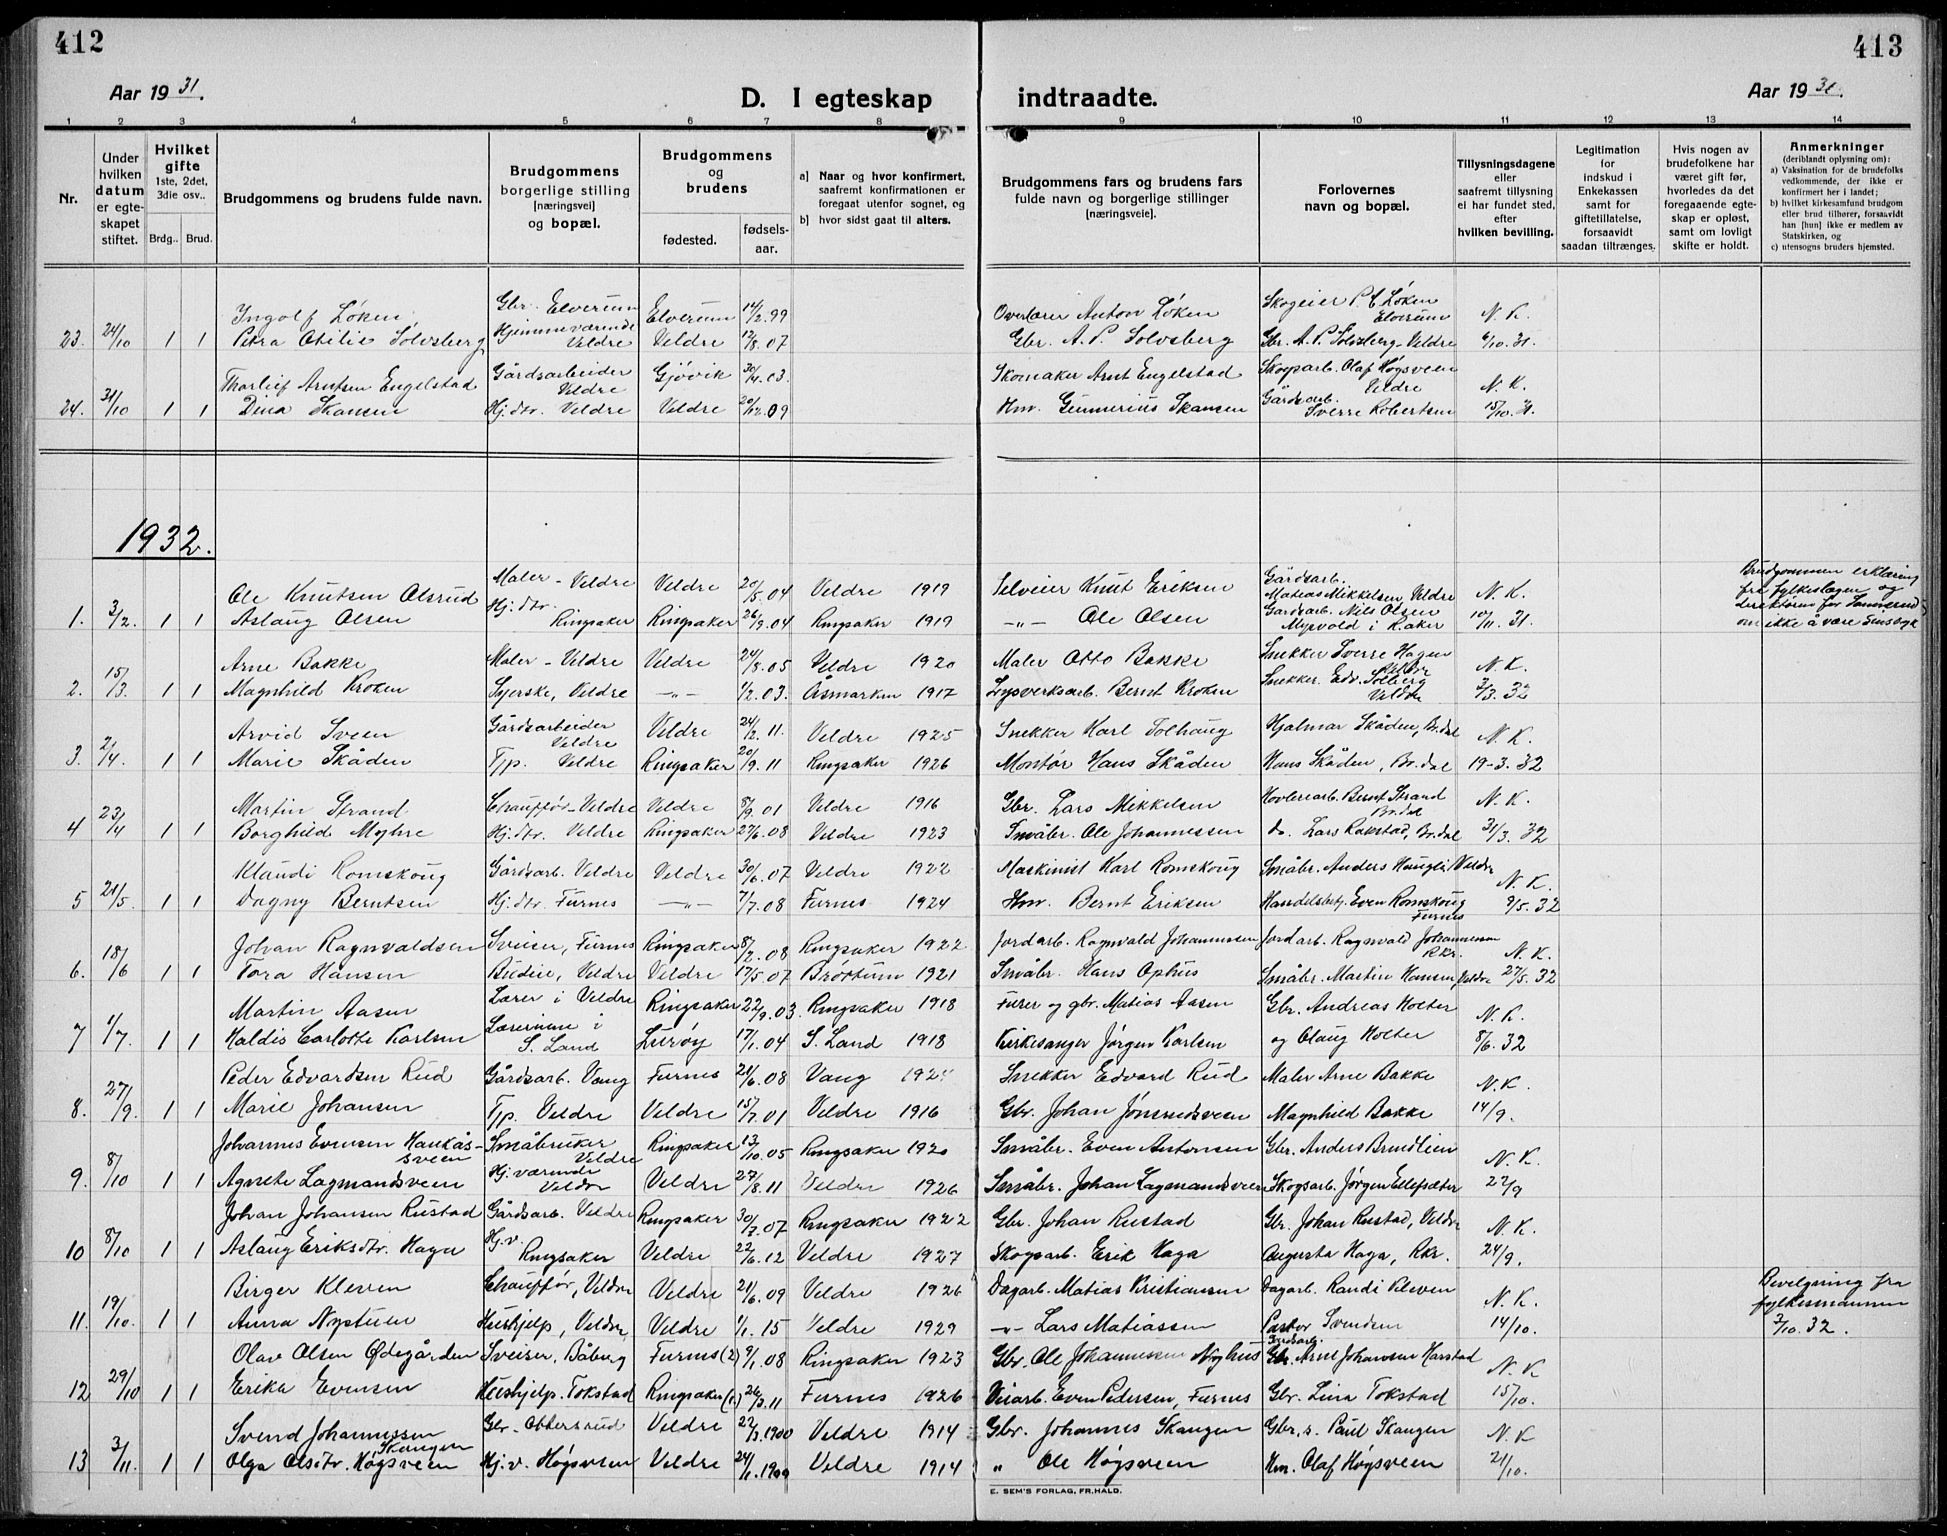 412
413
Aar 1931.
D. I egteskap indtraadte.
Aar 1931.
1 2 3 4 5 6 7 8 9 10 11 12 13 14
Nr.
Under hvilken datum er egteskapet stiftet.
Hvilket gifte 1ste, 2det, 3die osv..
Brdg.. Brud.
Brudgommens og brudens fulde navn.
Brudgommens borgerlige stilling [næringsvei] og bopæl.
Brudgommens og brudens
fødested. fødsels-aar.
a] Naar og hvor konfirmert, saafremt konfirmationen er foregaat utenfor sognet, og
b] hvor sidst gaat til alters.
Brudgommens fars og brudens fars fulde navn og borgerlige stillinger [næringsveie].
Forlovernes navn og bopæl.
Tillysningsdagene eller saafremt tillysning ei har fundet sted, efter hvilken bevilling.
Legitimation for indskud i Enkekassen samt for giftetillatelse, forsaavidt saadan tiltrænges.
Hvis nogen av brudefolkene har været gift før, hvorledes da det foregaaende egteskap er opløst, samt om lovligt skifte er holdt.
Anmerkninger (deriblandt oplysning om):
a) Vaksination for de brudefolks vedkommende, der ikke er konfirmert her i landet;
b) hvilket kirkesamfund brudgom eller brud tilhører, forsaavidt han [hun] ikke er medlem av Statskirken, og
c) utensogns bruders hjemsted.
Ingolf Løken Gbr. Elverum Elverum 14/2.99 Overlærer Anton Løken Skogeier P. C Løken Elverum N. K.
23. 24/10 1 1 Petra Otilie Solvsberg Hjemmeværende Veldre Veldre 12/8.07 Gbr. A. P. Solvsberg Gbr. A. P. Solvsberg - Veldre 6/10.31.
Thorlief Arntsen Engelstad Gårdsarbeider Veldre Gjøvik 30/4.03. Skomaker Arnt Engelstad Skogsarb. Olaf Høgsveen Veldre N. K.
24. 31/10 1 1 Dina Skansen Hj. dtr. Veldre Veldre 20/12.09 Hm. Gunnerius Skansen Gårdsarb. Sverre Robertsen 15/10.31.
1932.
Ole Knutsen Olsrud Maler - Veldre Veldre 20/5.04 Veldre 1919 Selveier Knut Eriksen Gårdsarb. Matias Mikkelsen, Veldre N. K. Brudgommen erklæring fra fylkeslægen og
1. 3/2. 1 1 Aslaug Olsen Hj. dtr. Ringsaker Ringsaker 26/9.04 Ringsaker 1919 -„- Ole Olsen Gårdsarb. Nils Olsen Myrvold i R.aker 10/11.31. om ikke å være
Arne Bakke Maler - Veldre Veldre 24/8.05 Veldre 1920 Maler Otto Bakke Snekker Sverre Hagen Veldre N. K.
2. 15/3. 1 1 Magnhild Kroken Syerske, Veldre -„- 1/2.03. Åsmarken 1917 Lysverksarb. Bernt Kroken Snekker. Edv. Solberg Veldre 3/3.32
Arvid Sveen Gårdsarbeider Veldre Veldre 24/2.11. Veldre 1925 Snekker Karl Tolhaug Hjalmar Skåden, Br.dal N. K.
3. 2/4. 1 1 Marie Skåden Tjp. Veldre Ringsaker 20/9.11 Ringsaker 1926 Montør Hans Skåden Hans Skåden, Br.dal 19-3.32
Martin Strand Chauffør - Veldre Veldre 8/9.01 Veldre 1916 Gbr. Lars Mikkelsen Hovleriarb. Bernt Strand Br.dal N. K.
4 23/4 1 1 Borghild Myhre Hj. dtr. Veldre Ringsaker 27/6.08 Veldre 1923 Småbr. Ole Johannessen do. Lars Rakstad, Br.dal 31/3.32
Klaudi Romskoug Gårdsarb. Veldre Veldre 30/6.07 Veldre 1922 Maskinist Karl Romskoug Småbr. Anders Haugli Veldre N. K.
5 21/5. 1 1 Dagny Berntsen Hj. dtr. Furnes -„- 7/7.08 Furnes 1924 Hm. Bernt Eriksen Handelsbetj. Even Romskoug Furnes 9/5.32
Johan Ragnvaldsen Sveiser, Furnes Ringsaker 8/2.08 Ringsaker 1922 Jordarb. Ragnvald Johannessen Jordarb. Ragnvald Johannessen Rkr. N. K.
6. 18/6 1 1 Tora Hansen Budeie, Veldre Veldre 17/5.07 Brøttum 1921 Småbr. Hans Ophus Småbr. Martin Hansen, Veldre 27/5.32
Martin Aasen Lærer i Veldre Ringsaker 22/9.03. Ringsaker 1918 Furer og gbr. Matias Aasen Gbr. Andreas Holter N. K.
7 1/7. 1 1 Haldis Carlotte Karlsen Lærerinne i S. Land Lurøy 17/1.04 S. Land 1918 Kirkesanger Jørgen Karlsen og Olaug Holter 8/6.32
Peder Edvardsen Rud Gårdsarb. Vang Furnes 21/6.08 Vang 1924 Snekker Edvard Rud Maler Arne Bakke N. K.
8. 27/9. 1 1 Marie Johansen Tjp. Veldre Veldre 15/7.01 Veldre 1916 Gbr. Johan Jønsrudsveen Magnhild Bakke 14/9.
Johannes Evensen Haukåssveen Småbruker Veldre Ringsaker 13/10.05 Ringsaker 1920 Småbr. Even Antonsen Gbr. Anders Brudlien N. K.
9. 8/10 1 1 Agnete Lagmandsveen Hj. værende Veldre Veldre 27/8.11 Veldre 1926 Småbr. Johan Lagmandsveen Skogsarb. Jørgen Ellefsæter 22/9
Johan Johansen Rustad Gårdsarb. Veldre Ringsaker 30/7.07 Ringsaker 1922 Gbr. Johan Rustad Gbr. Johan Rustad, Veldre N. K.
10 8/10 1 1 Aslaug Eriksdtr. Hagen Hj. v. Ringsaker Veldre 22/6.12 Veldre 1927 Skogsarb. Erik Haga Augusta Haga, Rkr. 24/9.
Birger Kleven Chauffør, Veldre Veldre 21/6.09 Veldre 1926 Dagarb. Matias Kristiansen Dagarb. Randi Kleven N. K. Bevilgning fra fylkesmannen
11. 19/10. 1 1 Anna Nystuen Hushjelp, Veldre Veldre 1/1.15 Veldre 1929 -„- Lars Matiassen Pastor Svendsen 14/10. 3/10.32.
Olav Olsen Ødegården Sveiser, Båberg Furnes (2) 9/1.08 Ringsaker 1923 Gbr. Ole Johannessen Nyhus Jordarb. Arne Johansen Harstad N. K
12 29/10 1 1 Erika Evensen Hushjelp. Tokstad Ringsaker (1.) 26/3.11 Furnes 1926 Veiarb. Even Pedersen, Furnes Gbr. Lina Tokstad 15/10.
Svend Johannessen Skangen Gbr. Ottersrud Veldre 22/3.1900 Veldre 1914 Gbr. Johannes Skangen Gbr. s. Paul Skangen N. K
13 3/11. 1 1 Olga Olsdtr. Høgsveen Hj. v. Høgsveen Veldre 24/1.1900 Veldre 1914 „ Ole Høgsveen Hm. Olaf Høgsveen 21/10.
E. SEM'S FORLAG, FR.HALD.